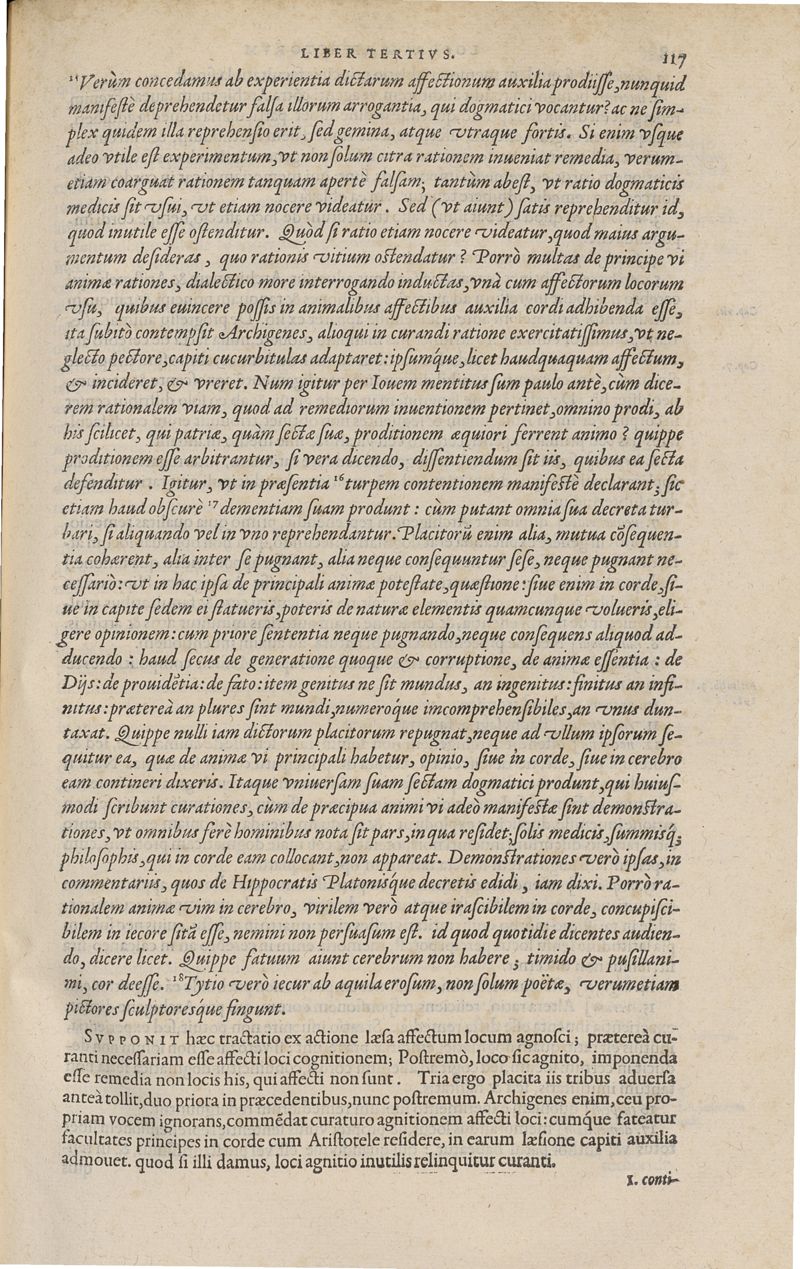 LIBER TERTIVS. 117
¹⁵Verùm concedamus ab experientia dictarum affectionum auxilia prodiisse, nunquid
manifestè deprehendetur falsa illorum arrogantia, qui dogmatici vocantur? ac ne sim-
plex quidem illa reprehensio erit, sed gemina, atque vtraque fortis. Si enim vsque
adeo vtile est experimentum, vt non solum citra rationem inueniat remedia, verum-
etiam coarguat rationem tanquam apertè falsam; tantùm abest, vt ratio dogmaticis
medicis sit vsui, vt etiam nocere videatur. Sed (vt aiunt) satis reprehenditur id,
quod inutile esse ostenditur. Quòd si ratio etiam nocere videatur, quod maius argu-
mentum desideras, quo rationis vitium ostendatur? Porrò multas de principe vi
animæ rationes, dialectico more interrogando inductas, vnà cum affectorum locorum
vsu, quibus euincere possis in animalibus affectibus auxilia cordi adhibenda esse,
ita subitò contempsit Archigenes, alioqui in curandi ratione exercitatissimus, vt ne-
glecto pectore, capiti cucurbitulas adaptaret: ipsumq́ue, licet haudquaquam affectum,
& incideret, & vreret. Num igitur per Iouem mentitus sum paulo antè, cùm dice-
rem rationalem viam, quod ad remediorum inuentionem pertinet, omnino prodi, ab
his scilicet, qui patriæ, quàm sectæ suæ, proditionem æquiori ferrent animo? quippe
proditionem esse arbitrantur, si vera dicendo, dissentiendum sit iis, quibus ea secta
defenditur. Igitur, vt in præsentia ¹⁶turpem contentionem manifestè declarant, sic
etiam haud obscurè ¹⁷dementiam suam produnt: cùm putant omnia sua decreta tur-
bari, si aliquando vel in vno reprehendantur. Placitorũ enim alia, mutua cõsequen-
tia cohærent, alia inter se pugnant, alia neque consequuntur sese, neque pugnant ne-
cessariò: vt in hac ipsa de principali animæ potestate, quæstione: siue enim in corde, si-
ue in capite sedem ei statueris, poteris de naturæ elementis quamcunque volueris, eli-
gere opinionem: cum priore sententia neque pugnando, neque consequens aliquod ad-
ducendo: haud secus de generatione quoque & corruptione, de animæ essentia: de
Dijs: de prouidẽtia: de fato: item genitus ne sit mundus, an ingenitus: finitus an infi-
nitus: prætereà an plures sint mundi, numeroq́ue imcomprehensibiles, an vnus dun-
taxat. Quippe nulli iam dictorum placitorum repugnat, neque ad vllum ipsorum se-
quitur ea, quæ de animæ vi principali habetur, opinio, siue in corde, siue in cerebro
eam contineri dixeris. Itaque vniuersam suam sectam dogmatici produnt, qui huius-
modi scribunt curationes, cùm de præcipua animi vi adeò manifestæ sint demonstra-
tiones, vt omnibus ferè hominibus nota sit pars, in qua residet; solis medicis, summisq́;
philosophis, qui in corde eam collocant, non appareat. Demonstrationes verò ipsas, in
commentariis, quos de Hippocratis Platonisq́ue decretis edidi, iam dixi. Porrò ra-
tionalem animæ vim in cerebro, virilem verò atque irascibilem in corde, concupisci-
bilem in iecore sitã esse, nemini non persuasum est. id quod quotidie dicentes audien-
do, dicere licet. Quippe fatuum aiunt cerebrum non habere; timido & pusillani-
mi, cor deesse. ¹⁸Tytio verò iecur ab aquila erosum, non solum poëtæ, verumetiam
pictores sculptoresq́ue fingunt.
SVPPONIT hæc tractatio ex actione læsa affectum locum agnosci; prætereà cu-
ranti necessariam esse affecti loci cognitionem; Postremò, loco sic agnito, imponenda
esse remedia non locis his, qui affecti non sunt. Tria ergo placita iis tribus aduersa
anteà tollit, duo priora in præcedentibus, nunc postremum. Archigenes enim, ceu pro-
priam vocem ignorans, commẽdat curaturo agnitionem affecti loci: cumq́ue fateatur
facultates principes in corde cum Aristotele residere, in earum læsione capiti auxilia
admouet. quod si illi damus, loci agnitio inutilis relinquitur curanti.
1. conti-